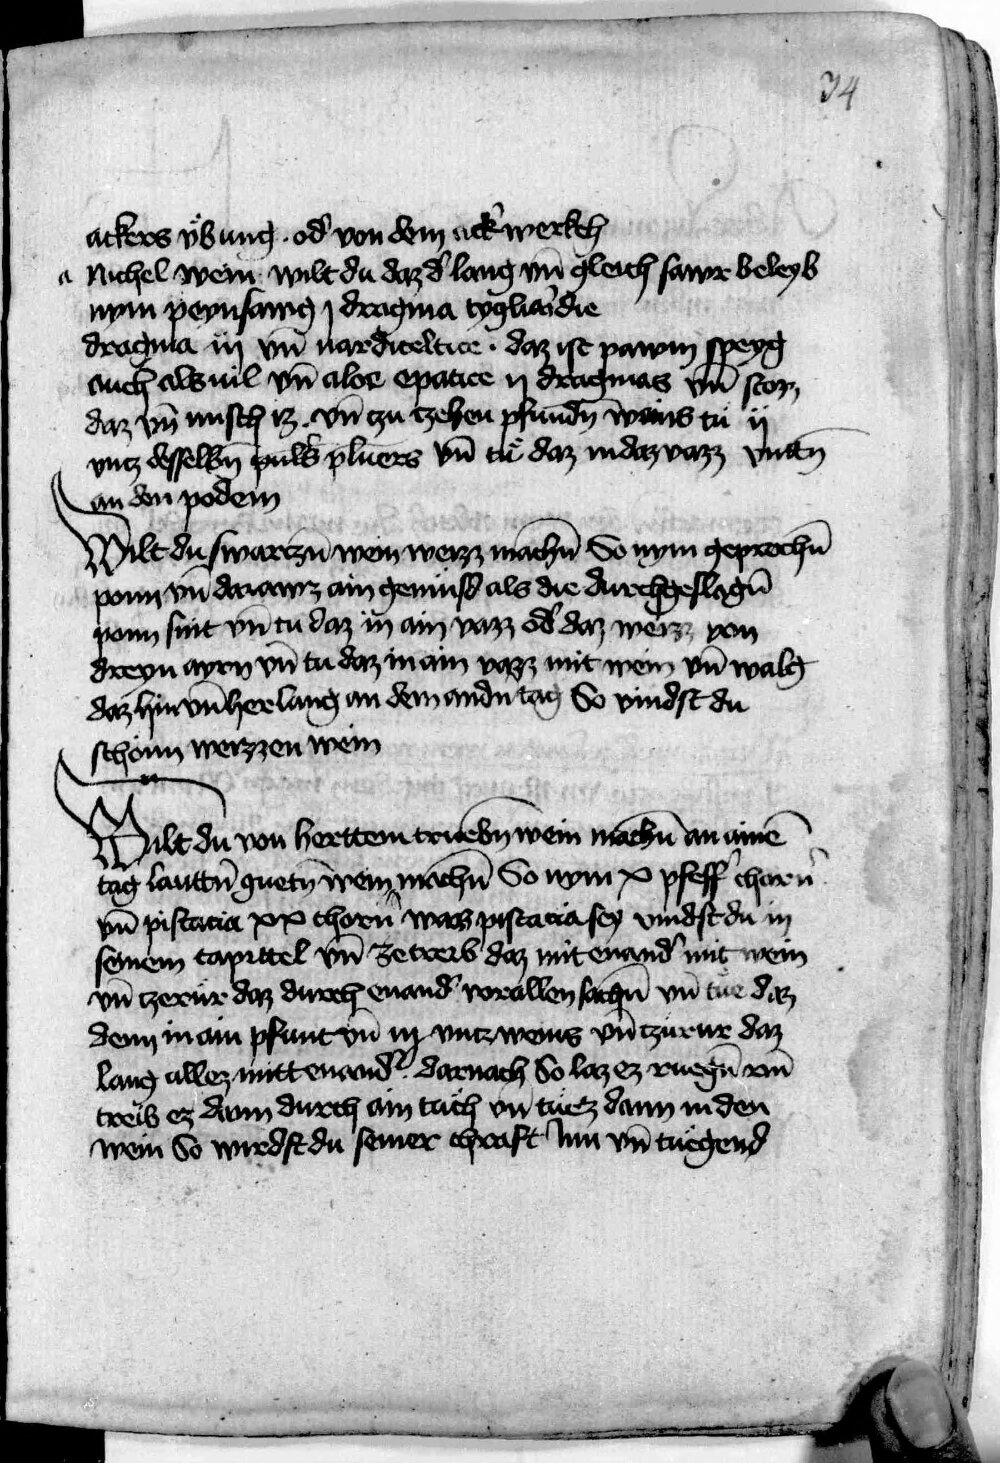 34
ackers vͤbung · od̕ von dem ack̕ werkch
a Nichel wein · wilt du daz d̕ lang vn̄ gleich sawr beleyb
nym peynsawg j dragma
dragma iij vn̄ nardiceltice · daz ist pawm speyg
auch als vil vn̄ aloe epatice ij dragmas vn̄ stoz
daz vn̄ misch iz · vn̄ tzu tzehen pfundn̄ weins tu ij
vntz desselbn̄ puls pluers vn̄ tuͤ daz in daz vazz vnttn̄
an den podem
Wilt du swartzn̄ wein weizz machn̄ So nym geprochn̄
ponn vn̄ darawz ain gemusd als die durchgeslagn̄
ponn sint vn̄ tu daz in ain vazz od̕ daz weizz von
dreyn ayrn vn̄ tu daz in ain vazz mit wein vn̄ walg
daz hin vn̄ her lang an dem andn̄ tag So vindst du
schönn weizzen wein
Wilt du von herttem truebn̄ wein machn̄ an ainē
tag lauttn̄ guetn̄ wein machn̄ So nym x pfeff̕ chorn̄
vn̄ pistacia xx chorn̄ was pistacia sey vindst du in
seinem capittel vn̄ zetreib daz mit enand̕ mit wein
vn̄ tzerur daz durch enand̕ vor allen sachn̄ vn̄ tue daz
denn in ain pfunt vn̄ iij vntz weins vn̄ tzurur daz
lang allez mitt enand̕ · darnach So laz ez ruegn̄ vn̄
treib ez dann durch ain tuͤch vn̄ tuͤtz dann in den
wein So wirdst du seiner chraft inn vn̄ tuͤgend